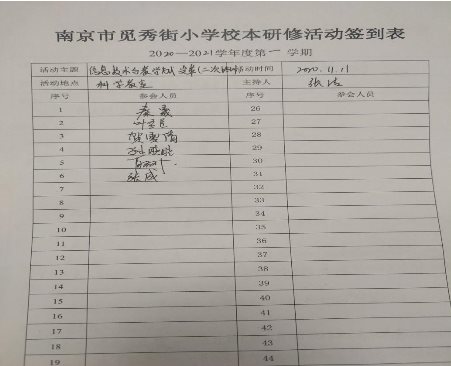 南京市觅秀街小学校本研修活动签到表
2020—2021学年度第一学期
活动主题 信息技术与教学 变革(二次 活动时间 2020.11.11
活动地点 科学教室 主持人 张洁
序号 参会人员 序号 参会人员
1 26
2 27
3 28
4 29
5 30
6 张成 31
7 32
8 33
9 34
10 35
11 36
12 37
13 38
14 39
15 40
16 41
17 42
18 43
19 44